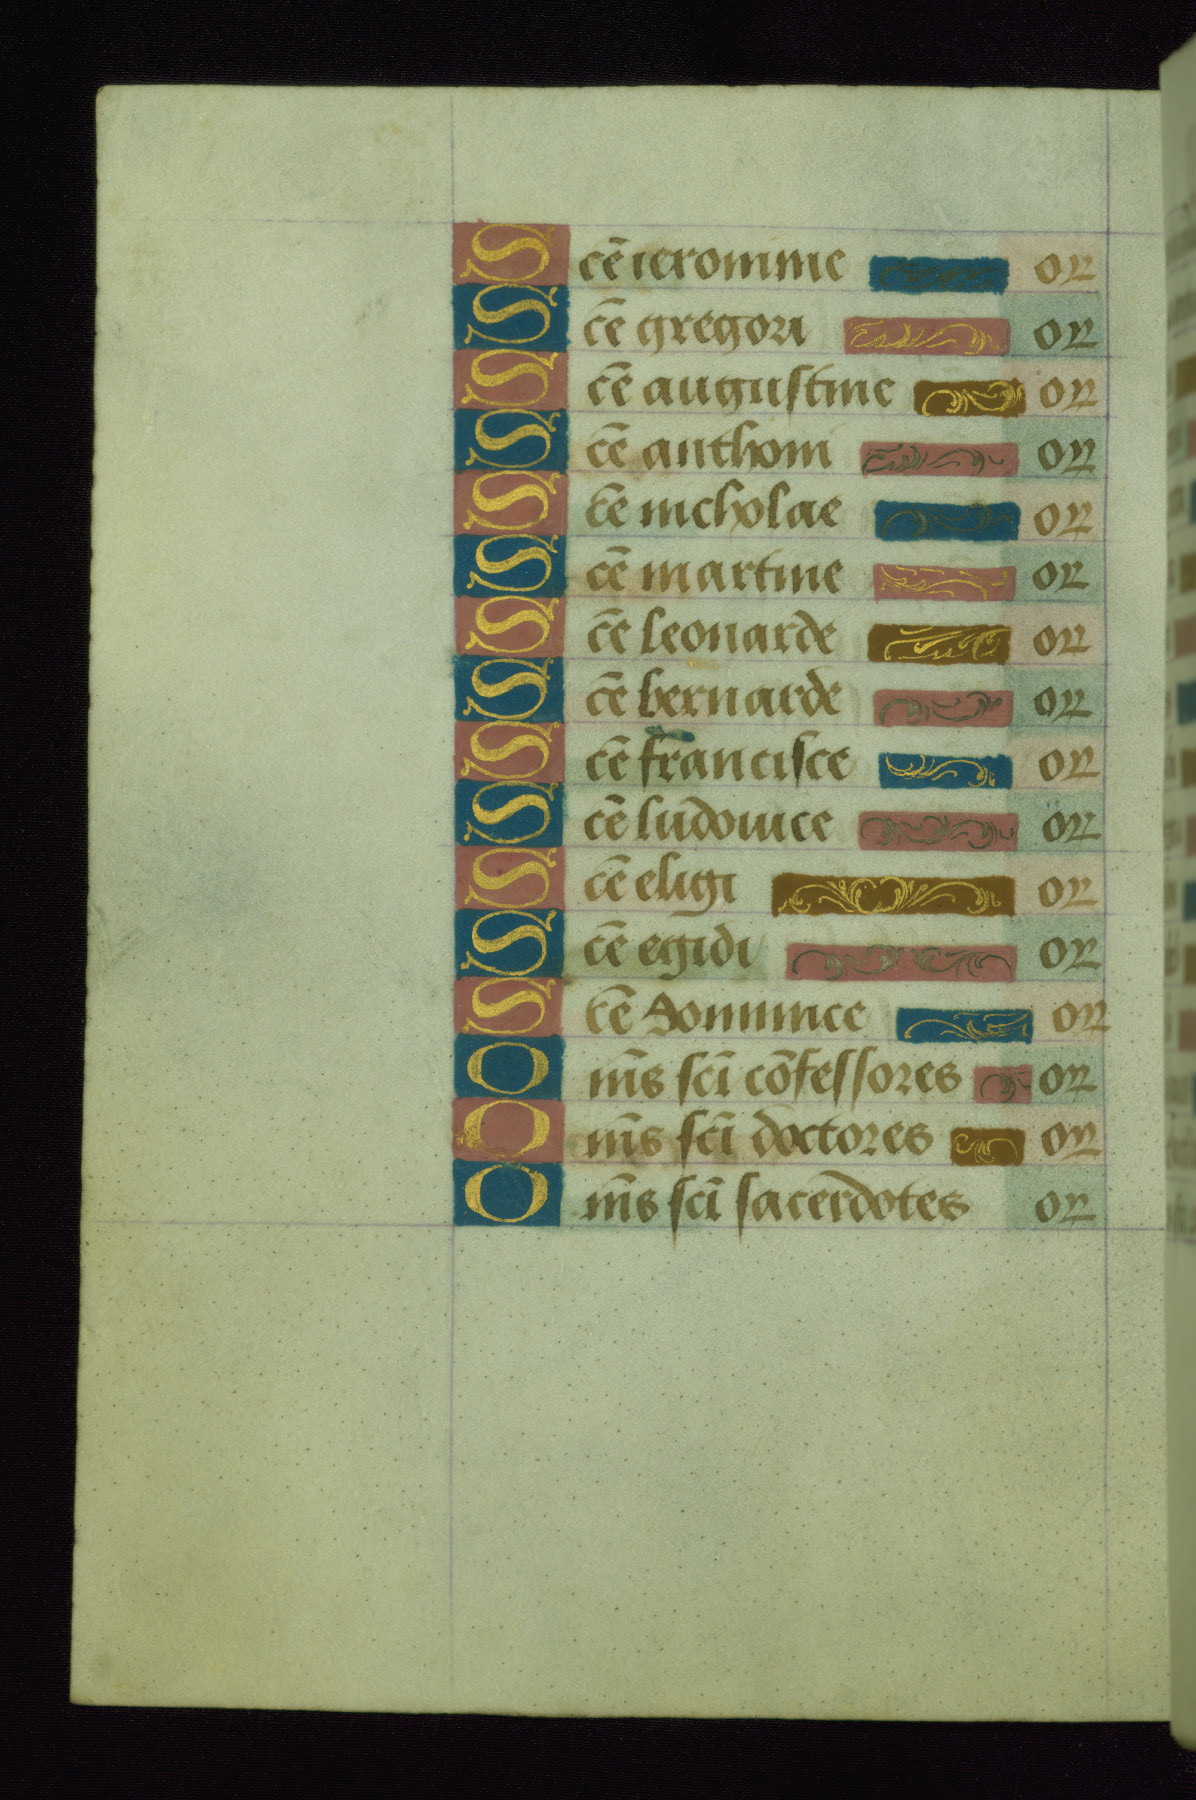 Scē ieronime or
Scē gregori or
Scē augustine or
Scē anthoni or
Scē nicholae or
Scē martine or
Scē leonarde or
Scē bernarde or
Scē francisce or
Scē ludouice or
Scē eligi or
Scē egidi or
Scē dominice or
Om̄s sc̄i cōfessores or
Om̄s sc̄i doctores or
Om̄s sc̄i sacerdotes or